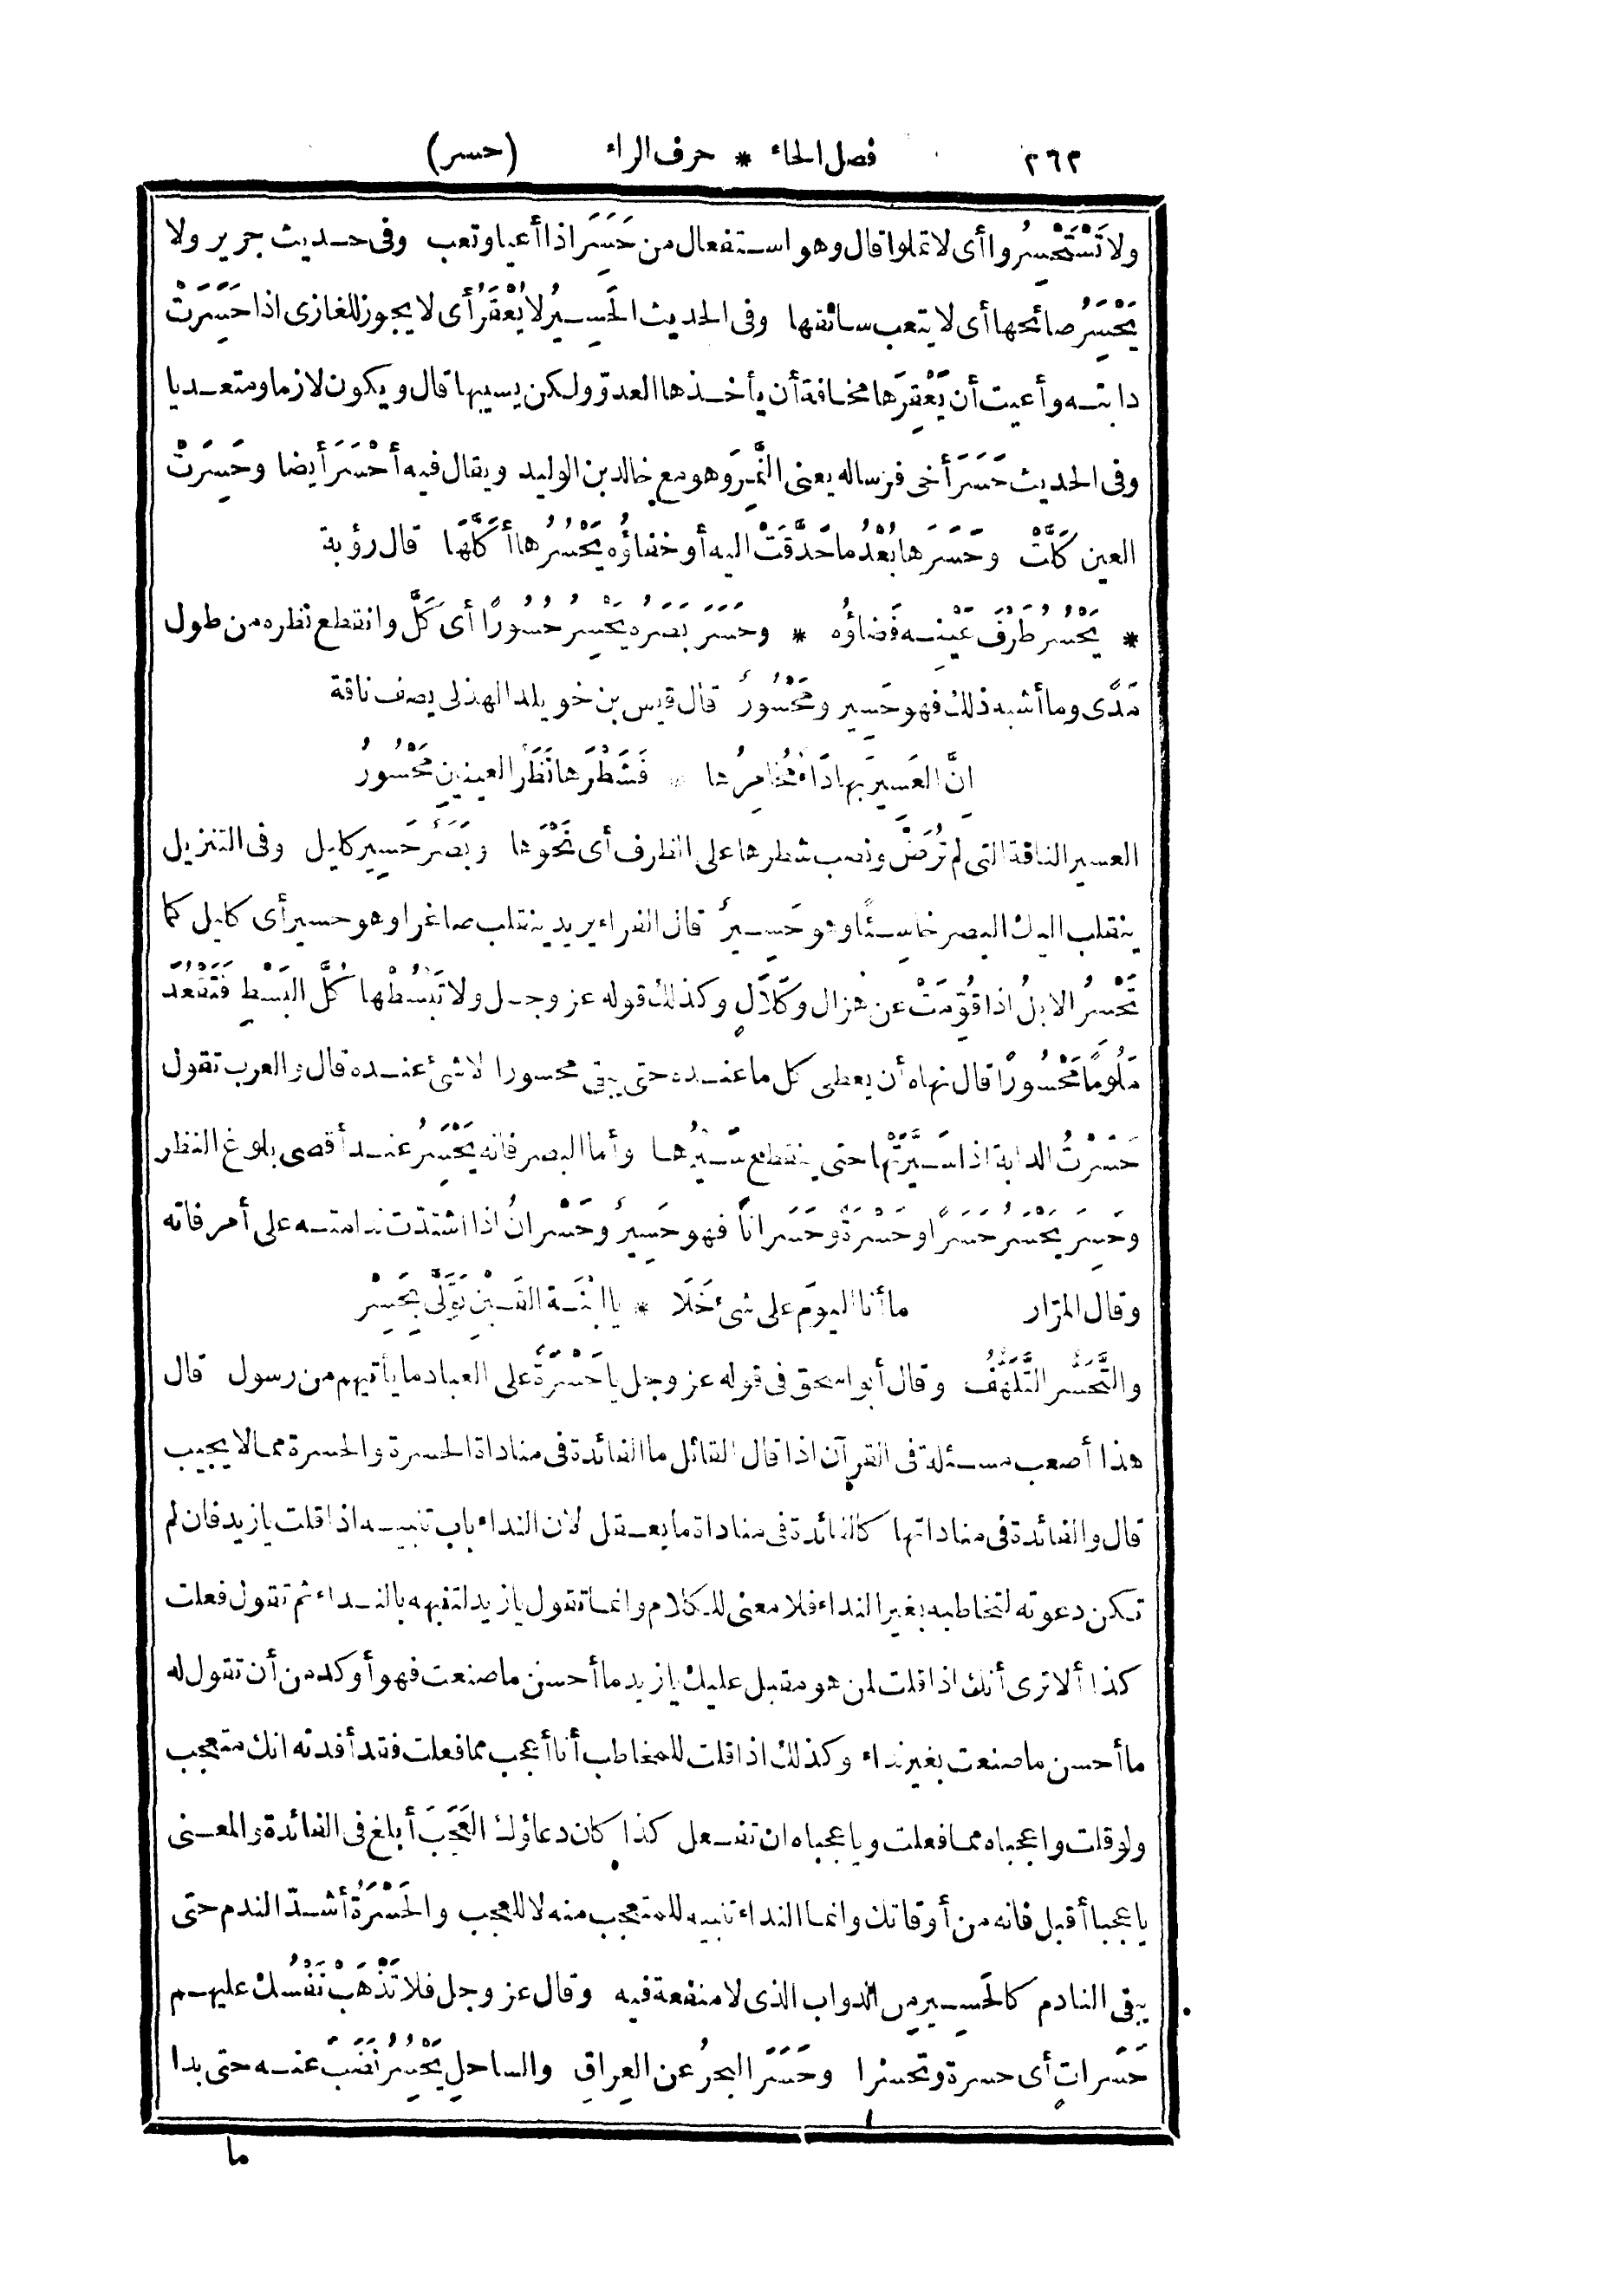 ٢٦٢ فصل الحاء * حرف الراء (حسر)
ولا تَسْتَحْسِرُوا أى لا تملوا قال وهو استفعال من حَسَرَ اذا أعيا وتعب وفى حديث جرير ولا
يَحْسِرُ صائحها أى لا يتعب سائقها وفى الحديث الحَسِيرُ لا يُعْقَرُ أى لا يجوز للغازى اذا حَسِرَتْ
دابته وأعيت أن يَعْقِرَها مخافة أن يأخذها العدوّ ولكن يسيبها قال ويكون لازما ومتعديا
وفى الحديث حَسَرَ أخى فرسا له يعنى النَّمِرَ وهو مع خالد بن الوليد ويقال فيه أَحْسَرَ أيضا وحَسِرَتْ
العين كَلَّتْ وحَسَرَها بُعْدُ ما حَدَّقَتْ اليه أو خفاؤُه يَحْسُرُها أَكَلَّها قال رؤبة
* يَحْسُرُ طَرْفَ عَيْنِه فَضاؤُه * وحَسَرَ بَصَرُه يَحْسِرُ حُسُورًا أى كَلَّ وانقطع نظره من طول
مَدًى وما أشبه ذلك فهو حَسِير ومَحْسُورٌ قال قيس بن خويلد الهذلى يصف ناقة
انَّ العَسِيرَ بها دَاءٌ مُخامِرُها * فَشَطْرَها نَظَرُ العينينِ مَحْسُورُ
العسير الناقة التى لم تُرَضْ ونصب شطرها على الظرف أى نَحْوَها وبَصَرٌ حَسِير كليل وفى التنزيل
ينقلب اليك البصر خاسِئًا وهو حَسِيرٌ قال الفراء يريد ينقلب صاغرا وهو حسير أى كليل كما
تَحْسِرُ الابلُ اذا قُوِّمَتْ عن هزال وكَلَالٍ وكذلك قوله عز وجل ولا تَبْسُطْها كُلَّ البَسْطِ فَتَقْعُدَ
مَلُومًا مَحْسُورًا قال نهاه أن يعطى كل ما عنده حتى يبقى محسورا لا شئ عنده قال والعرب تقول
حَسَرْتُ الدابة اذا سَيَّرتَها حتى ينقطع سَيْرُها وأما البصر فانه يَحْسَرُ عند أقصى بلوغ النظر
وحَسِرَ يَحْسَرُ حَسَرًا وحَسْرَةً وحَسَرانًا فهو حَسِيرٌ وحَسْرانُ اذا اشتدّت ندامته على أمر فاته
وقال المرّار ما أنا اليومَ على شئ خَلَا * يا ابْنَةَ القَيْنِ تَوَلَّى بِحَسِرْ
والتَّحَسُّر التَّلَهُّفُ وقال أبو اسحق فى قوله عز وجل يا حَسْرَةً على العباد ما يأتيهم من رسول قال
هذا أصعب مسئلة فى القرآن اذا قال القائل ما الفائدة فى مناداة الحسرة والحسرة مما لا يجيب
قال والفائدة فى مناداتها كالفائدة فى مناداة ما يعقل لان النداء باب تنبيه اذا قلت يا زيد فان لم
تكن دعوته لتخاطبه بغير النداء فلا معنى للكلام وانما تقول يا زيد لتنبهه بالنداء ثم تقول فعلت
كذا ألا ترى أنك اذا قلت لمن هو مقبل عليك يا زيد ما أحسن ما صنعت فهو أوكد من أن تقول له
ما أحسن ما صنعت بغير نداء وكذلك اذا قلت للمخاطب أنا أعجب مما فعلت فقد أفدته انك متعجب
ولو قلت واعجباه مما فعلت ويا عجباه ان تفعل كذا كان دعاؤك العَجَبَ أبلغ فى الفائدة والمعنى
يا عجبا أقبل فانه من أوقاتك وانما النداء تنبيه للمتعجب منه لا للعجب والحَسْرَةُ أشدّ الندم حتى
يبقى النادم كالحَسِيرِ من الدواب الذى لا منفعة فيه وقال عز وجل فلا تَذْهَبْ نَفْسُك عليهم
حَسَراتٍ أى حسرة وتحسرا وحَسَرَ البحرُ عن العِراقِ والساحلِ يَحْسُرُ نَضَبَ عنه حتى بدا
ما